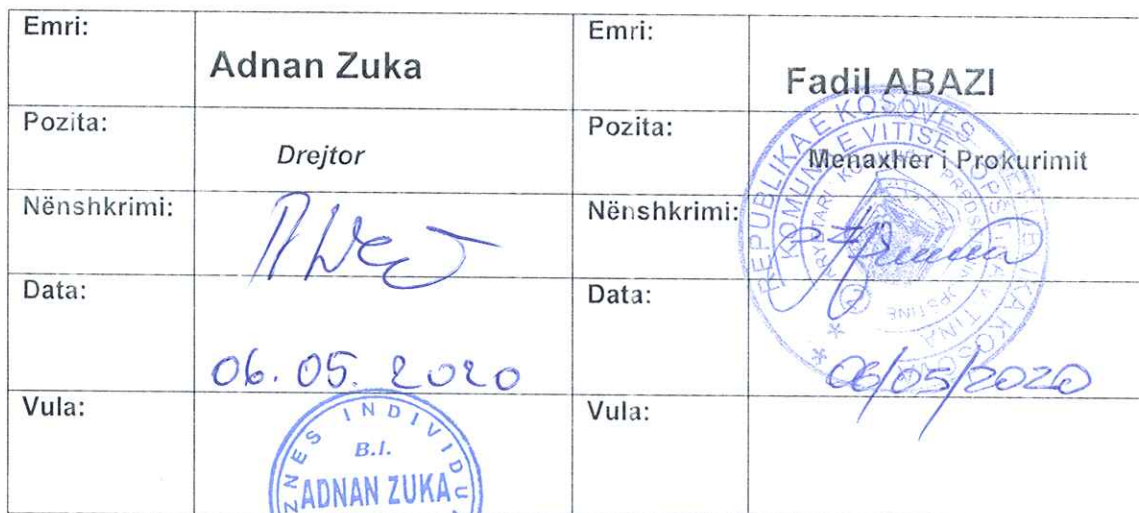 Emri:
Adnan Zuka
Emri:
Fadil ABAZI
Pozita:
Drejtor
Pozita:
Menaxher i Prokurimit
Nënshkrimi:
Nënshkrimi:
Data:
06.05.2020
Data:
06/05/2020
Vula:
B.I.
ADNAN ZUKA
Vula:
REPUBLIKA E KOSOVËS
KOMUNA E VITISË